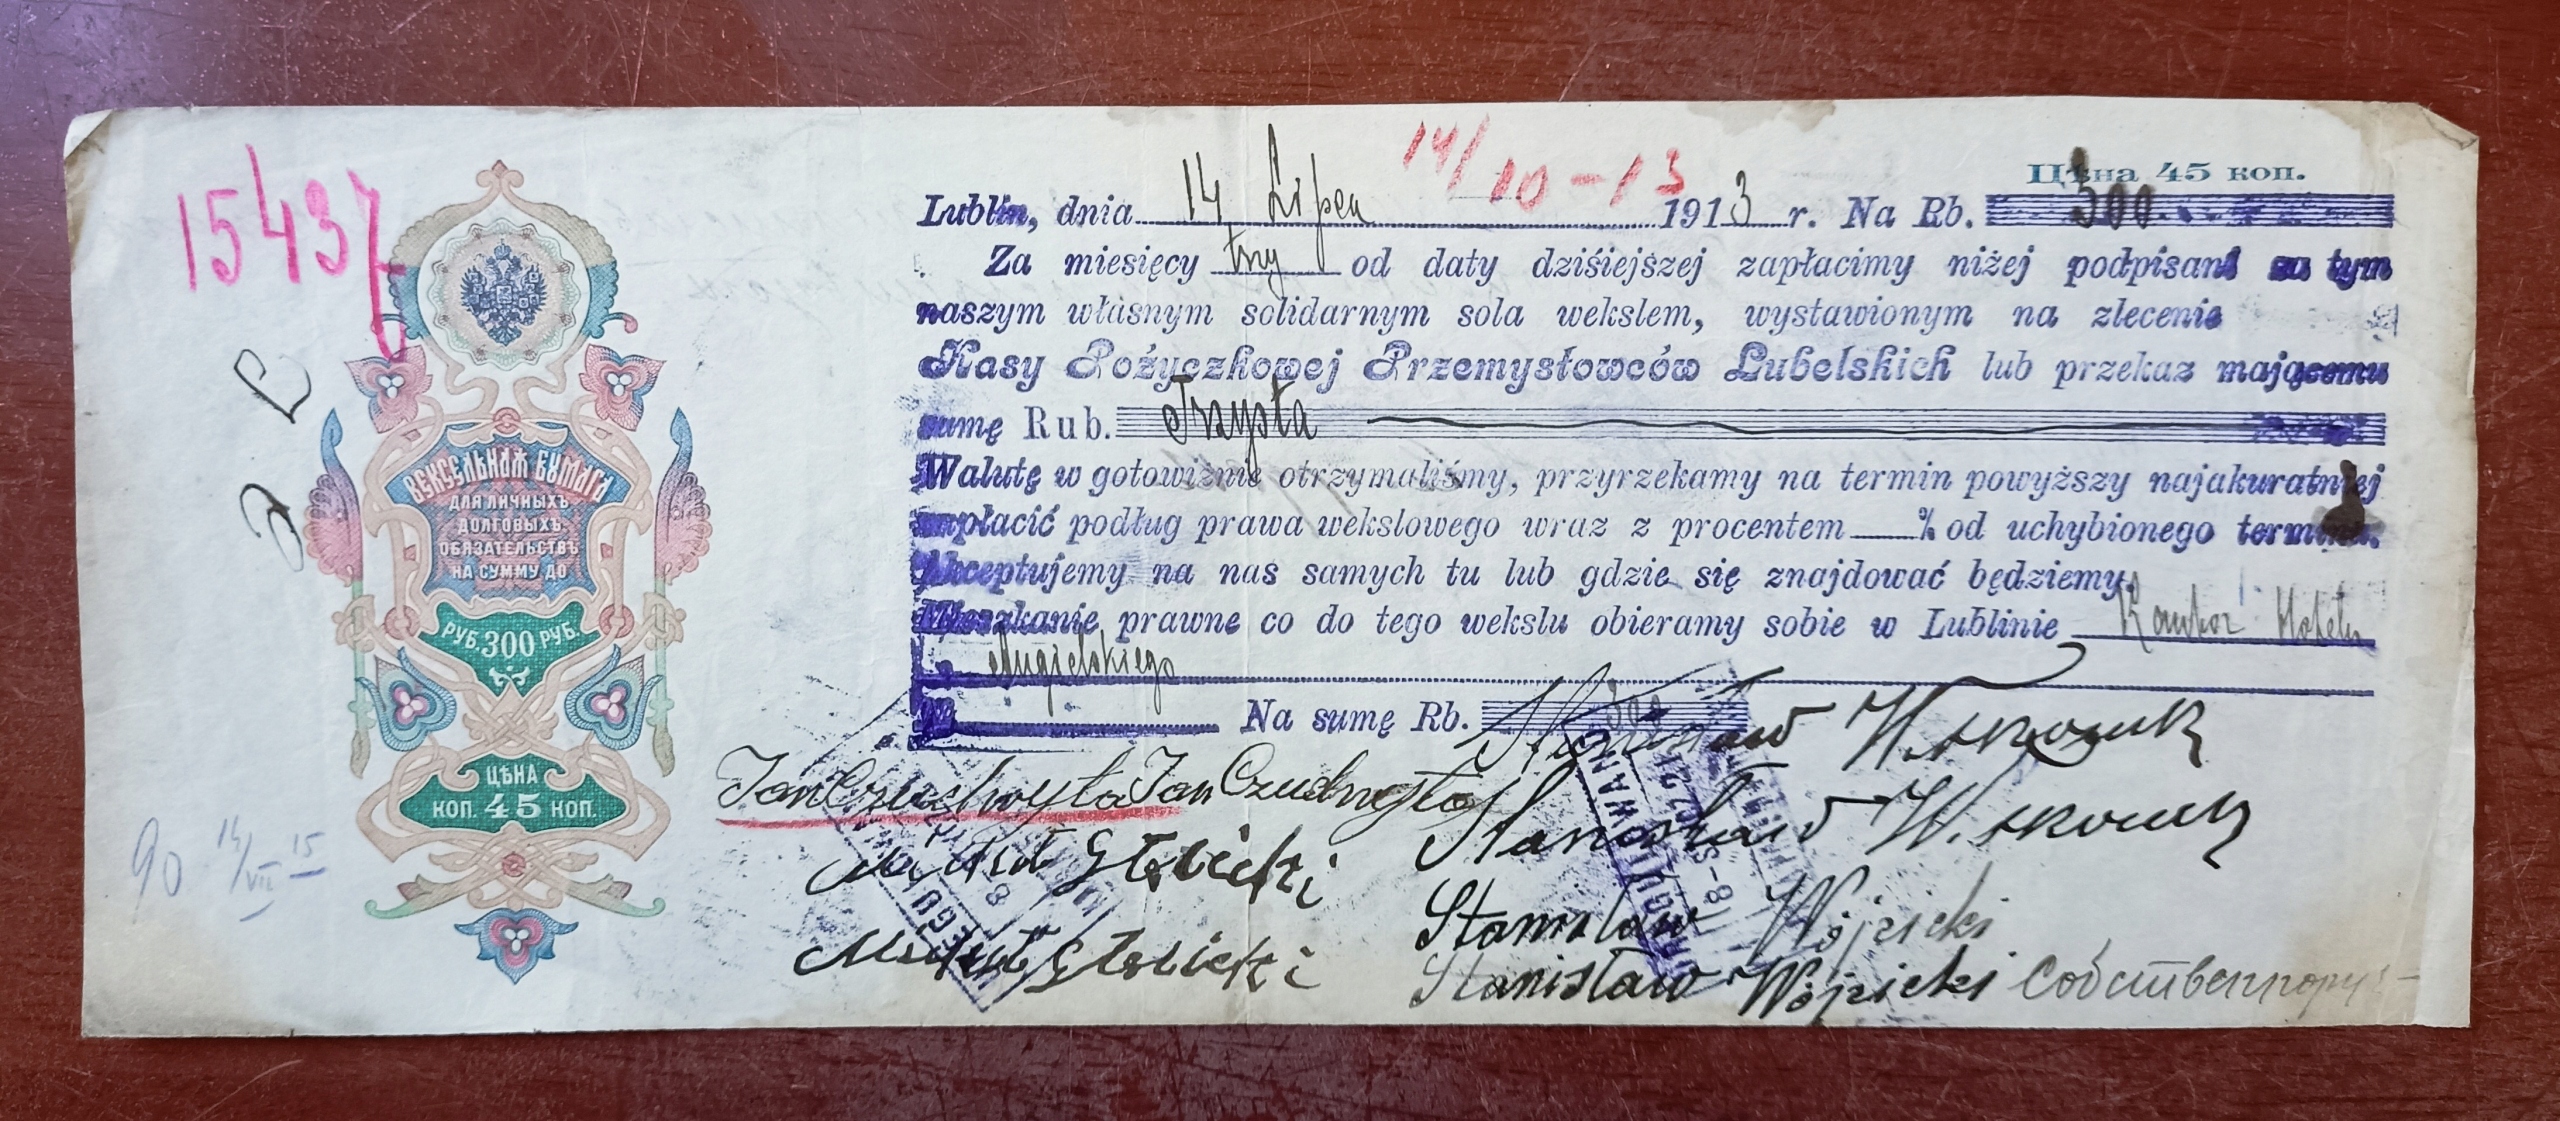 15437
14/10-13
Цѣна 45 коп.
Lublin, dnia 14 Lipca 1913 r. Na Rb. 300
Za miesięcy trzy od daty dzisiejszej zapłacimy niżej podpisani za tym
naszym własnym solidarnym sola wekslem, wystawionym na zlecenie
Kasy Pożyczkowej Przemysłowców Lubelskich lub przekaz mającemu
sumę Rub. Trzysta
Walutę w gotowiźnie otrzymaliśmy, przyrzekamy na termin powyższy najakuratniej
zapłacić podług prawa wekslowego wraz z procentem % od uchybionego terminu.
Akceptujemy na nas samych tu lub gdzie się znajdować będziemy.
Mieszkanie prawne co do tego wekslu obieramy sobie w Lublinie Kantor Hotelu
Angielskiego
Na sumę Rb. 300
ВЕКСЕЛЬНАЯ БУМАГА
ДЛЯ ЛИЧНЫХЪ
ДОЛГОВЫХЪ
ОБЯЗАТЕЛЬСТВЪ
НА СУММУ ДО
РУБ. 300 РУБ.
ЦѢНА
КОП. 45 КОП.
90 14/VII 15
Jan Jan
Stanisław
Stanisław
Stanisław Wójcicki
Stanisław Wójcicki